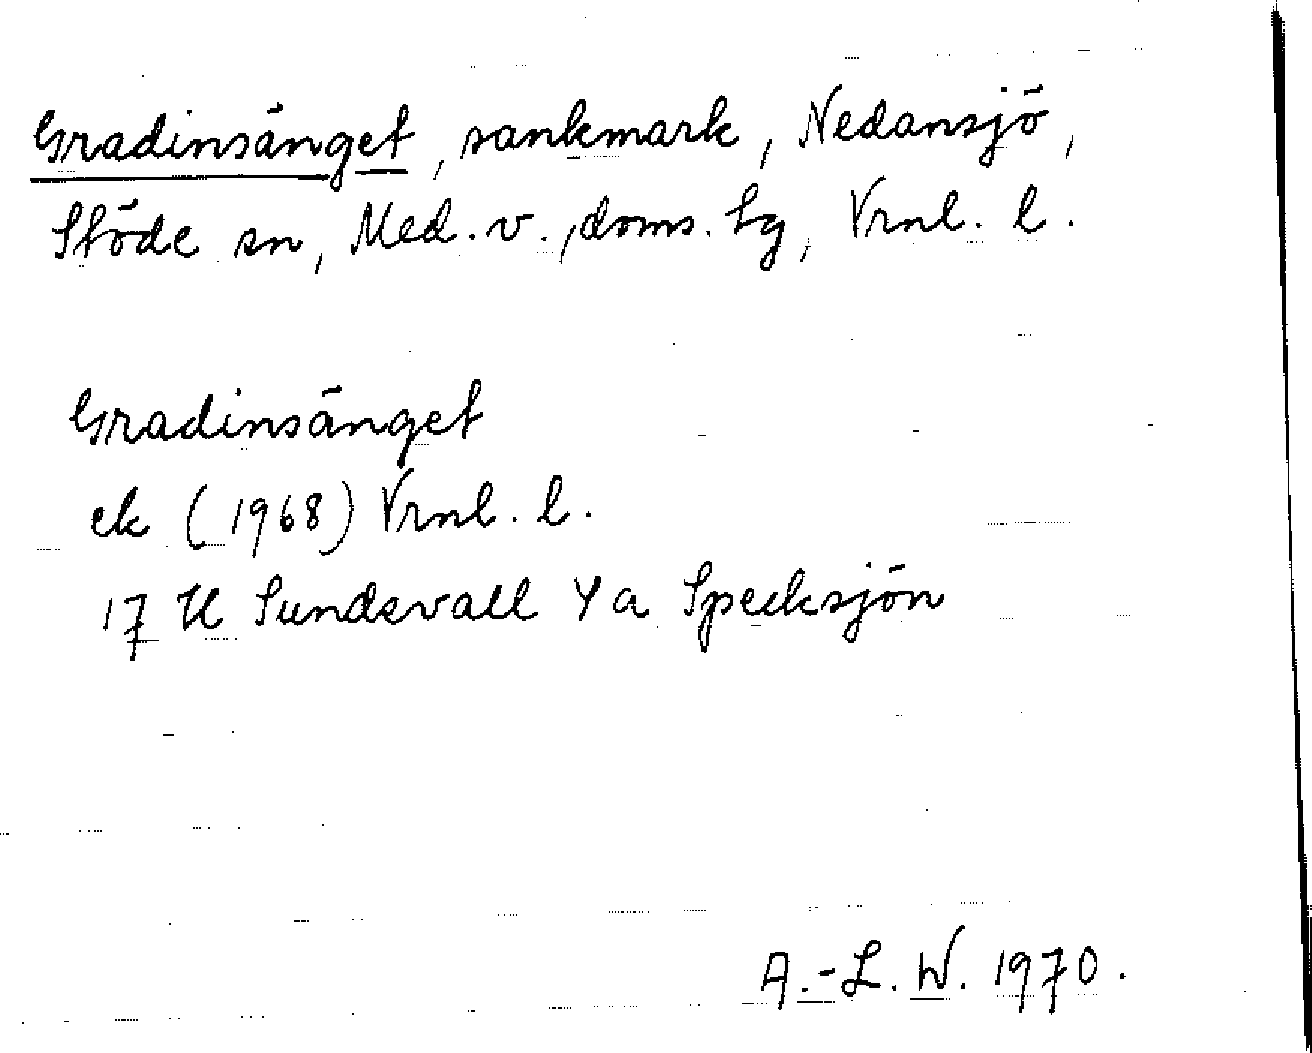 Gradinsänget, sankmark, Nedansjö,
Stöde sn, Med. v., doms. sg, Vrnl. l.
Gradinsänget
ek (1968) Vrnl. l.
17 H Sundsvall Ya Specksjön
A.-L. W. 1970.